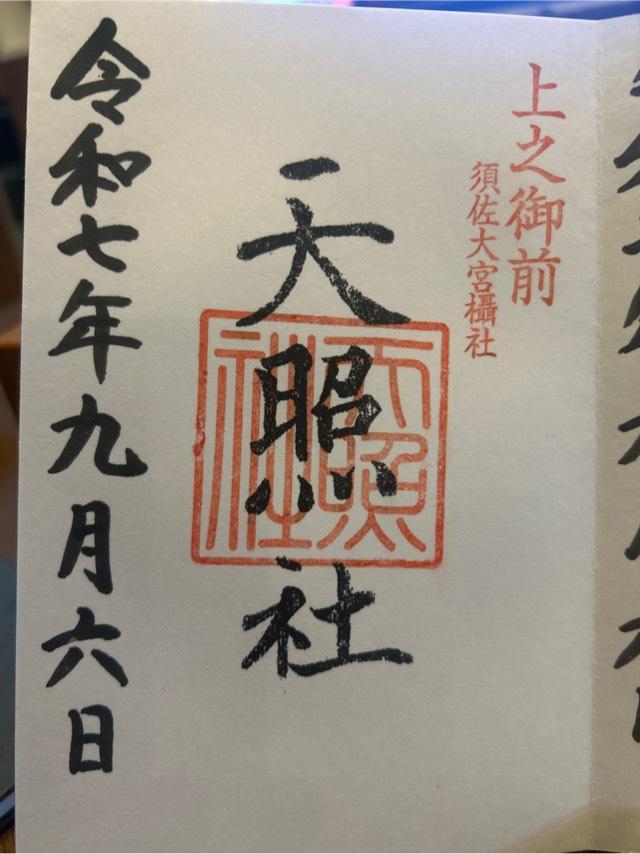 上之御前
須佐大宮攝社
天照社
天照社
令和七年九月六日